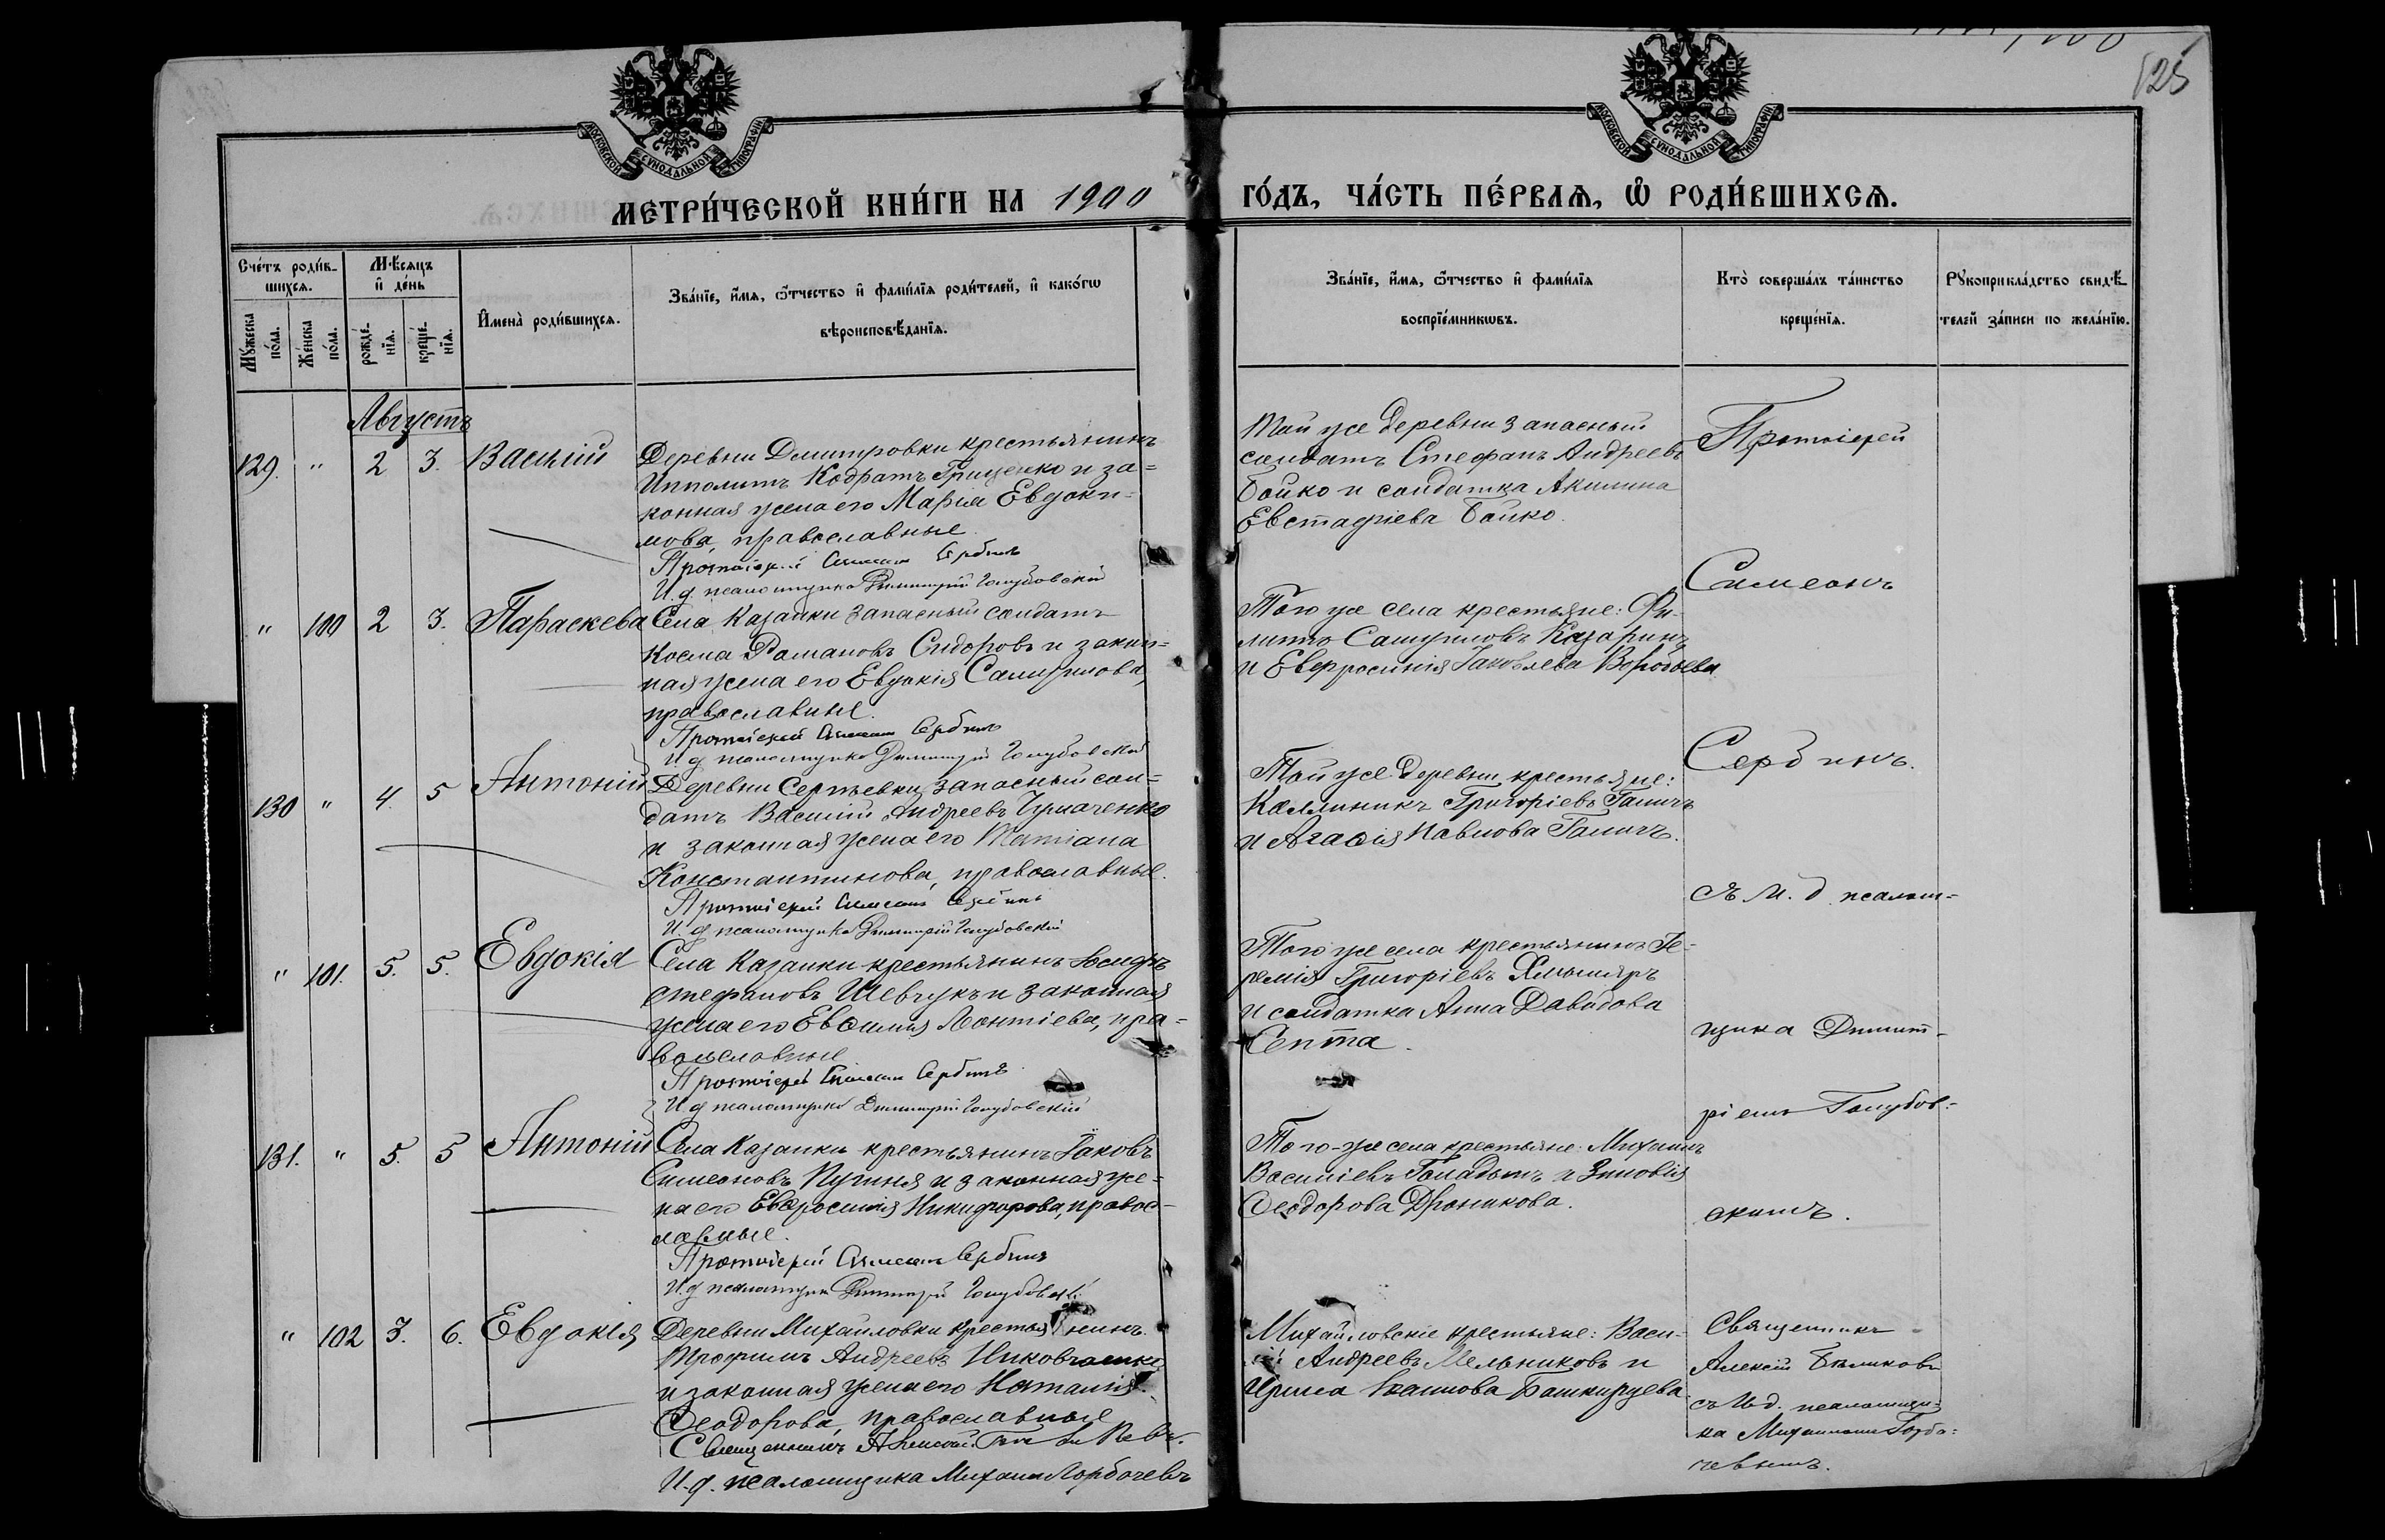 125
МОСКОВСКОЙ СѴНОДАЛЬНОЙ ТИПОГРАФІИ
МОСКОВСКОЙ СѴНОДАЛЬНОЙ ТИПОГРАФІИ
МЕТРИ́ЧЕСКОЙ КНИ́ГИ НА 1900
ГО́ДЪ, ЧА́СТЬ ПЕ́РВАѦ, Ѡ҆ РОДИ́ВШИХСѦ.
Сче́тъ роди́в-
шихся.
Мѣ́сяцъ
и҆ де́нь
Мꙋ́жеска
по́ла.
Же́нска
по́ла.
рожде́-
нїя.
креще́-
нїя.
И҆мена̀ роди́вшихся.
Зва́нїе, и҆́мя, ѻ҆́тчество и҆ фамі́лїя роди́телей, и҆ како́гѡ
вѣроисповѣ́данїя.
Зва́нїе, и҆́мя, ѻ҆́тчество и҆ фамі́лїя
воспрїе́мникѡвъ.
Кто̀ соверша́лъ та́инство
креще́нїя.
Рꙋкоприкла́дство свидѣ́-
телей за́писи по жела́нїю.
Августъ
129. " 2 3. Василій
Деревни Димитровки крестьянинъ
Ипполитъ Кодратъ Гриценко и за=
конная жена его Марія Евдоки=
мова, православные.
Протоіерей Симеонъ Сербинъ
И. д. псаломщика Димитрій Голубовскій
Той же деревни запасный
солдатъ Стефанъ Андреевъ
Бойко и солдатка Акилина
Евстафіева Бойко.
Протоіерей
Симеонъ
Сербинъ.
съ И. д. псалом=
щика Димит=
ріемъ Голубов=
скимъ.
" 100 2 3. Параскева
Села Казанки запасный солдатъ
Косма Романовъ Сидоровъ и закон=
ная жена его Евдокія Самуилова,
православные.
Протоіерей Симеонъ Сербинъ
И д псаломщика Димитрій Голубовскій
Того же села крестьяне: Фи-
липпъ Самуиловъ Казаринъ
и Евфросинія Іаковлева Воробьева
130 " 4. 5 Антоній
Деревни Сергѣевки запасный сол=
датъ Василій Андреевъ Чумаченко
и законная жена его Татіана
Константинова, православные.
Протоіерей Симеонъ Сербинъ
И. д псаломщика Димитрій Голубовскій
Той же деревни крестьяне:
Каллиникъ Григоріевъ Галичъ
и Агаѳія Павлова Галичъ.
" 101. 5. 5. Евдокія
Села Казанки крестьянинъ Іосифъ
Стефановъ Шевчукъ и законная
жена его Евѳимія Леонтіева, пра=
вославные.
Протоіерей Симеонъ Сербинъ
И д псаломщика Димитрій Голубовскій
Того же села крестьянинъ Іе-
ремія Григоріевъ
и солдатка Анна Давидова
Септа.
131. " 5. 5 Антоній
Села Казанки крестьянинъ Іаковъ
Симеоновъ и законная же-
на его Евфросинія Никифорова, правос-
лавные.
Протоіерей Симеонъ Сербинъ
И. д псаломщика Димитрій Голубовскій
Того-же села крестьяне: Михаилъ
Василіевъ и Зиновія
Ѳеодорова Дроникова.
" 102 3. 6. Евдокія
Деревни Михайловки крестьянинъ
Трофимъ Андреевъ
и законная жена его Наталія
Ѳеодорова, православные
Священникъ Алексій Бѣликовъ.
И. д. псаломщика Михаилъ Горбачевъ
Михайловскіе крестьяне: Васи-
лій Андреевъ Мельниковъ и
Ирина Іоаннова Башкирцева
Священникъ
Алексій Бѣликовъ
съ И д. псаломщи-
ка Михаиломъ Горба=
чевымъ.